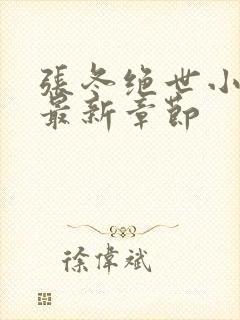 張冬绝世小
最新章節
徐偉斌